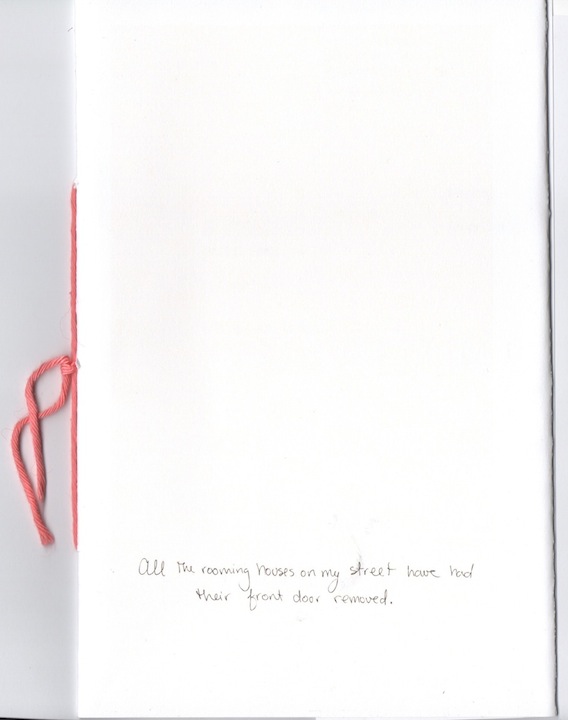 All the rooming houses on my street have had
their front door removed.